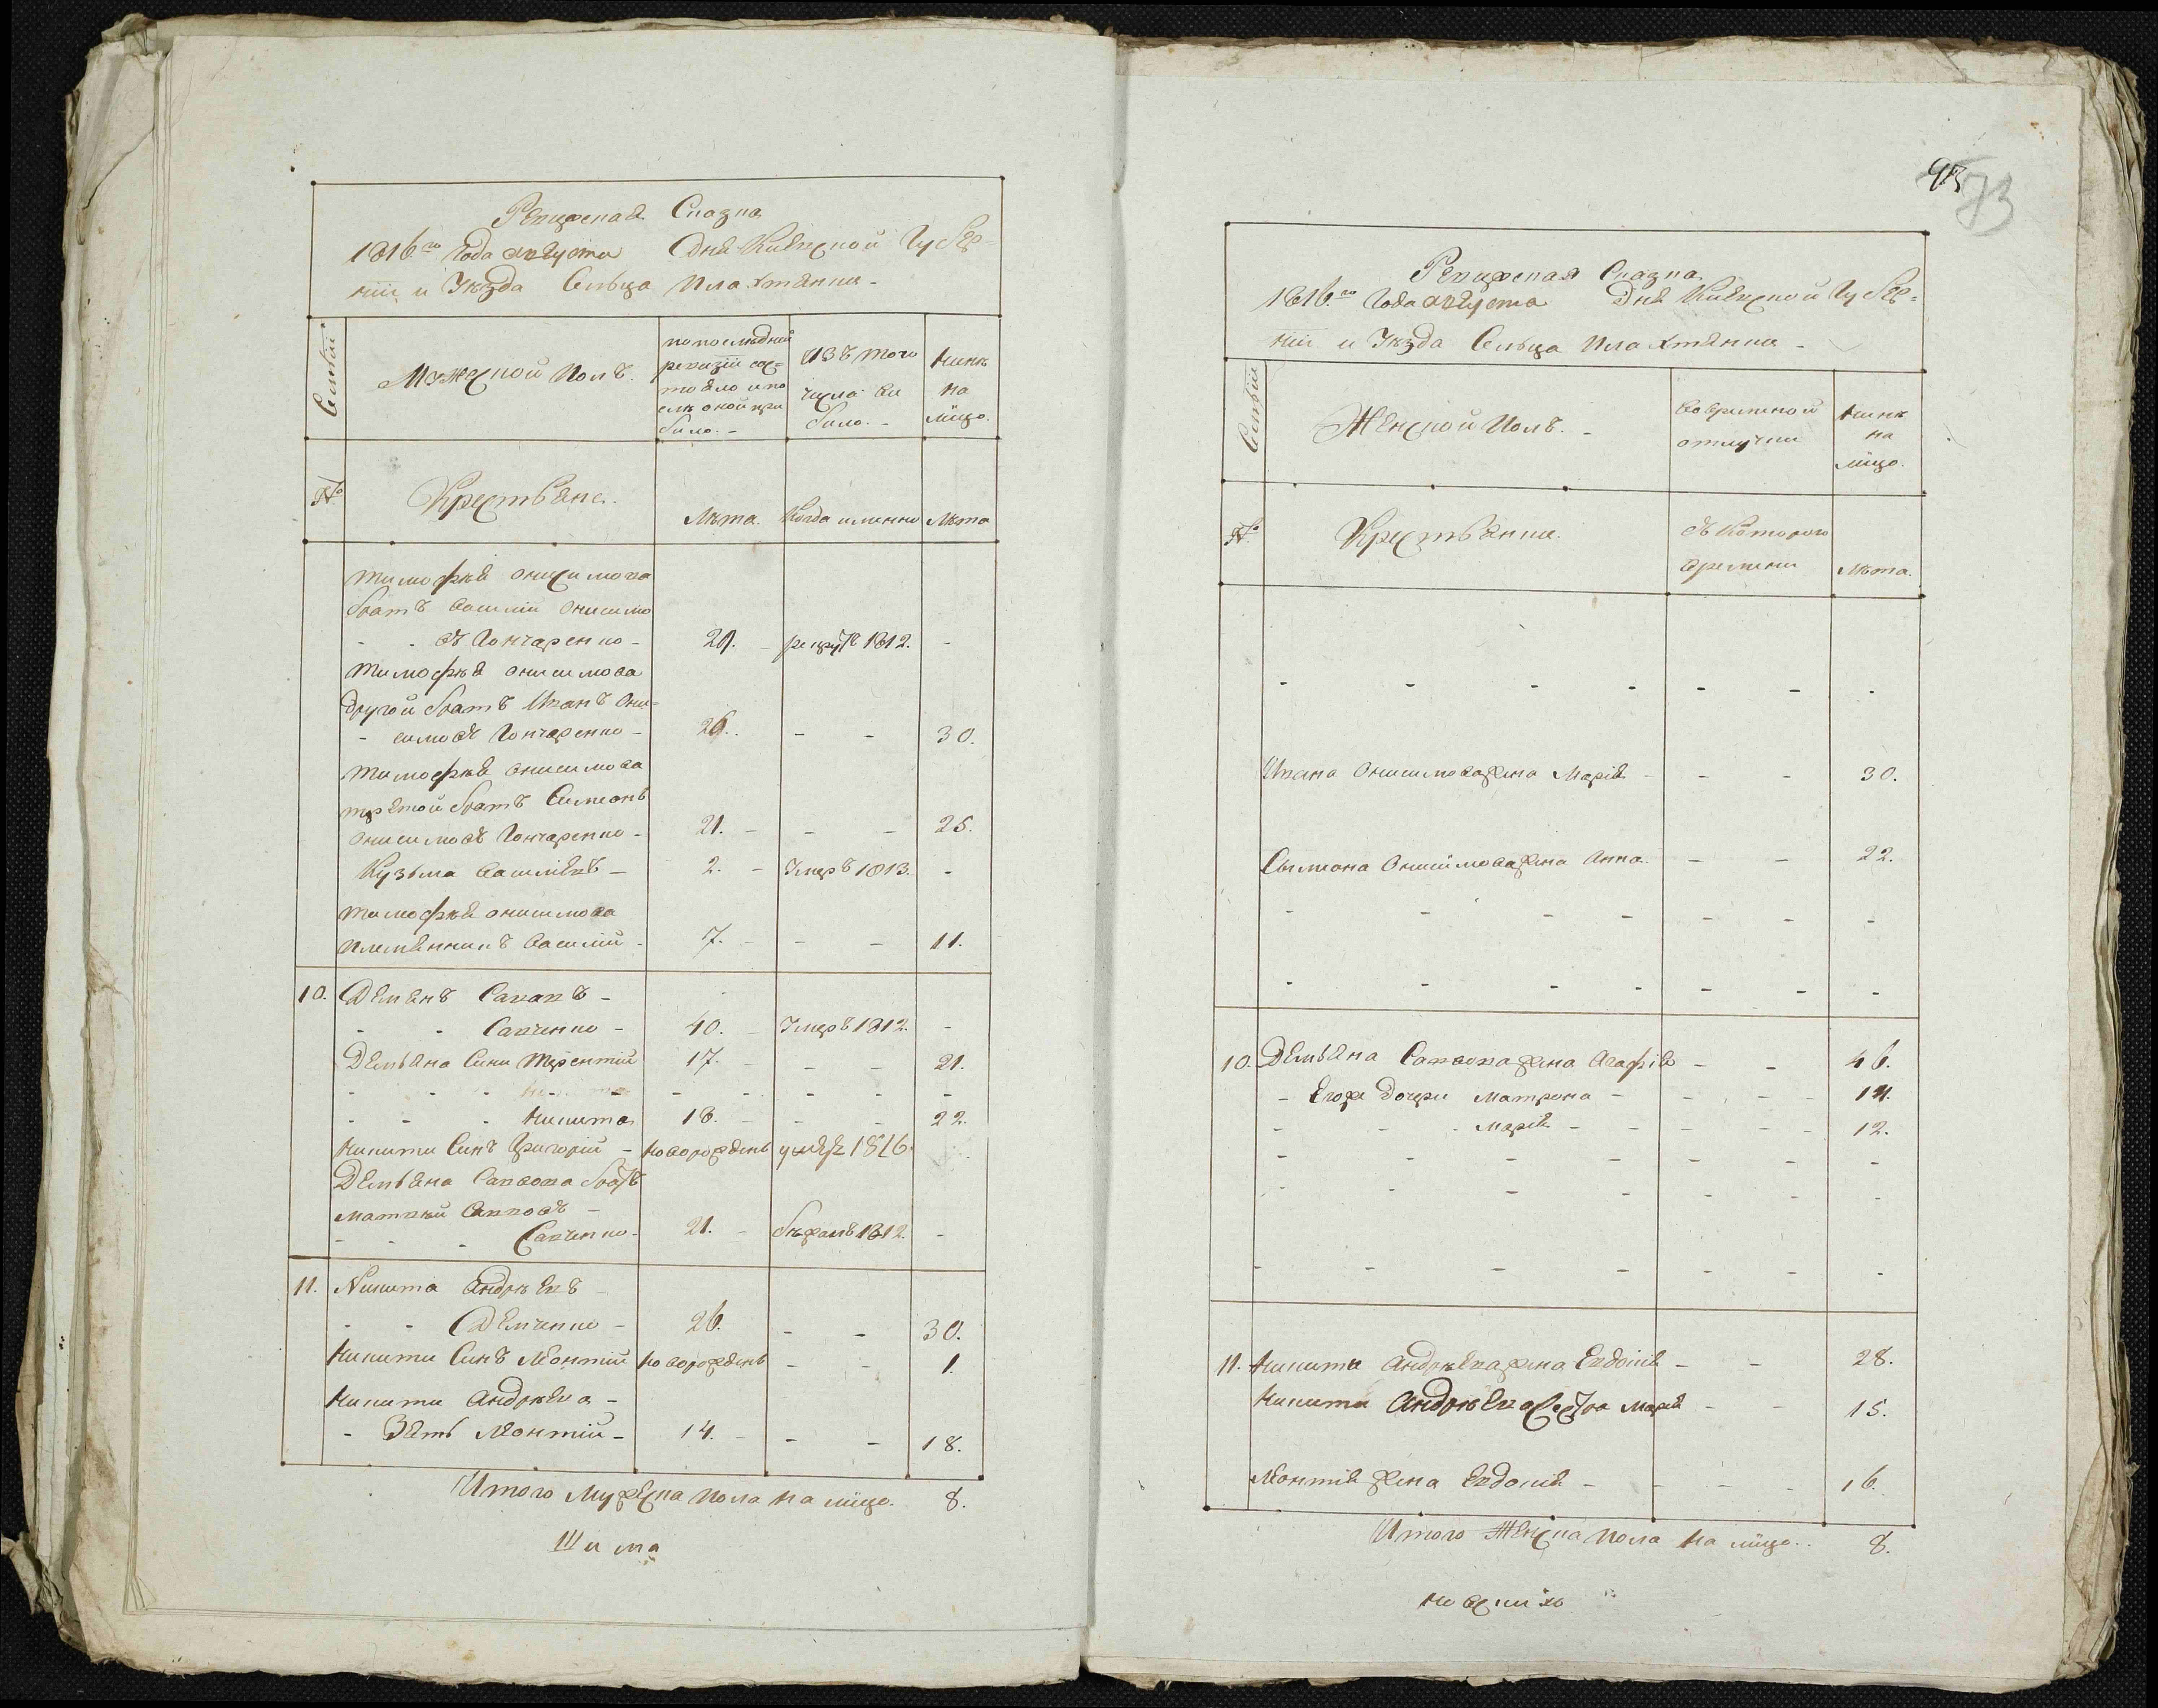 Ревизская Сказка
1816го Года августа Дня Киевской Губер=
нии и Уезда Сельца Плахтянки -
Семьи
Мужеской Полъ.
по последней ревизіи состояло и после оной прибыло. -
Изъ того числа выбыло. -
Ныне на лицо.
№
Крестьяне.
Лета. Когда именно Лета
Тимофея Онисимова
братъ Василий Онисимо
- - въ Гончаренко - 29. - рекрутъ 1812. -
Тимофея Онисимова
другой братъ Иванъ Они=
- симовъ Гончаренко - 26. - - 30.
Тимофея Онисимова
третой братъ Симеонъ
Онисимовъ Гончаренко - 21. - - - 25.
Кузьма Василіевъ - 2. - Умеръ 1813. -
Тимофея Онисимова
племянникъ Василий - 7. - - - 11.
10. Демянъ Саввовъ -
- - Савченко - 40. - Умеръ 1812. -
Демьяна Сыны Терентий 17. - - - 21.
- - - Никита 18. - - - 22.
Никиты Сынъ Григорий - новорожденъ умеръ 1816.
Демьяна Саввова братъ
Матвей Саввовъ -
- - - Савченко - 21. - бежалъ 1812. -
11. Никита Андреевъ -
- - Демченко - 26. - - 30.
Никиты Сынъ Леонтий новорожденъ - - 1
Никиты Андреева -
- Зять Леонтий - 14. - - - 18.
Итого Мужеска пола на лицо. 8.
Шима
95
73
Ревизская Сказка
1816го Года августа Дня Киевской Губер=
нии и Уезда Сельца Плахтянки -
Семьи
Женской Полъ. -
Во временной отлучки
Ныне на лицо.
№
Крестьянки.
Съ Которого времени
Лета.
- - - - - - -
Ивана Онисимова жена Марія - - - 30.
Симеона Онисимова жена Анна. - - 22.
- - - - - - -
- - - - - - -
10. Демьяна Саввова жена Агафія - - 46.
- Егоже дочери Матрона - - - - 14.
- - - Марія - - - - 12.
- - - - - - -
- - - - - - -
- - - - - - -
11. Никиты Андреева жена Евдокія - - 28.
Никиты Андреева Сестра Марія - - 15.
Леонтія жена Евдокія - - - - 16.
Итого Женска пола на лицо.. 8.